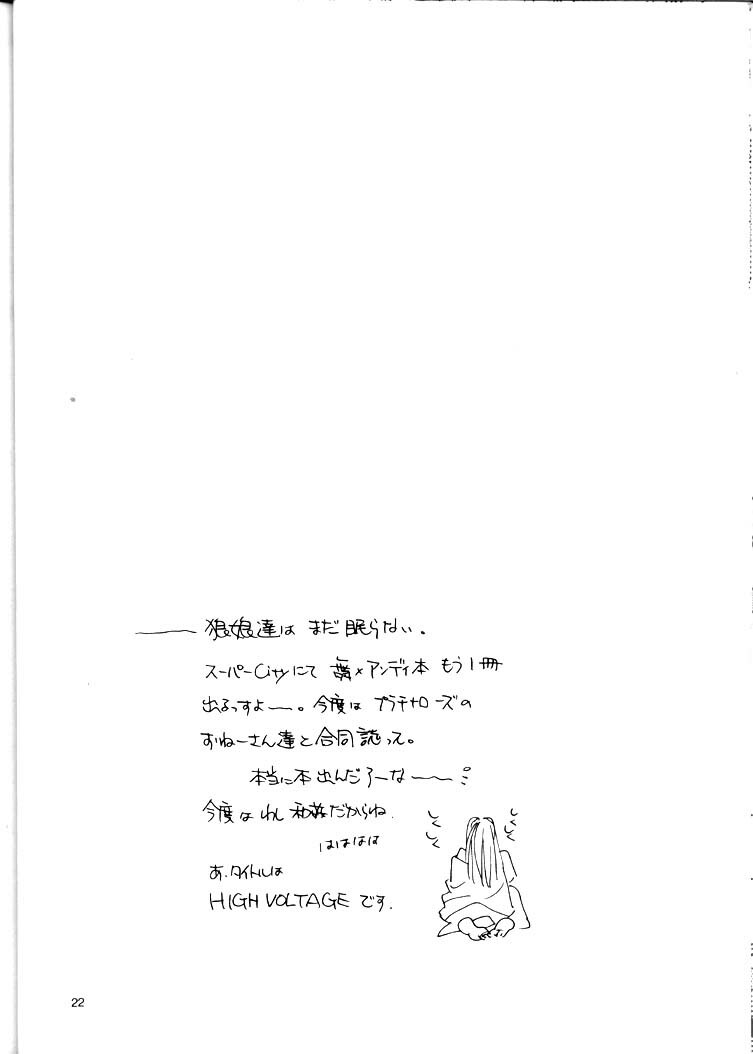 狼娘達は まだ眠らない。
スーパーCityにて ×アンディ本 もう1冊
出るっすよー。今度は プラチナローズの
おねーさん達と合同誌って。
本当に本出んだろーなーー
今度はわし だからね.
はははは
あ.タイトルは
HIGH VOLTAGE です.
しくしく
しくしく
22